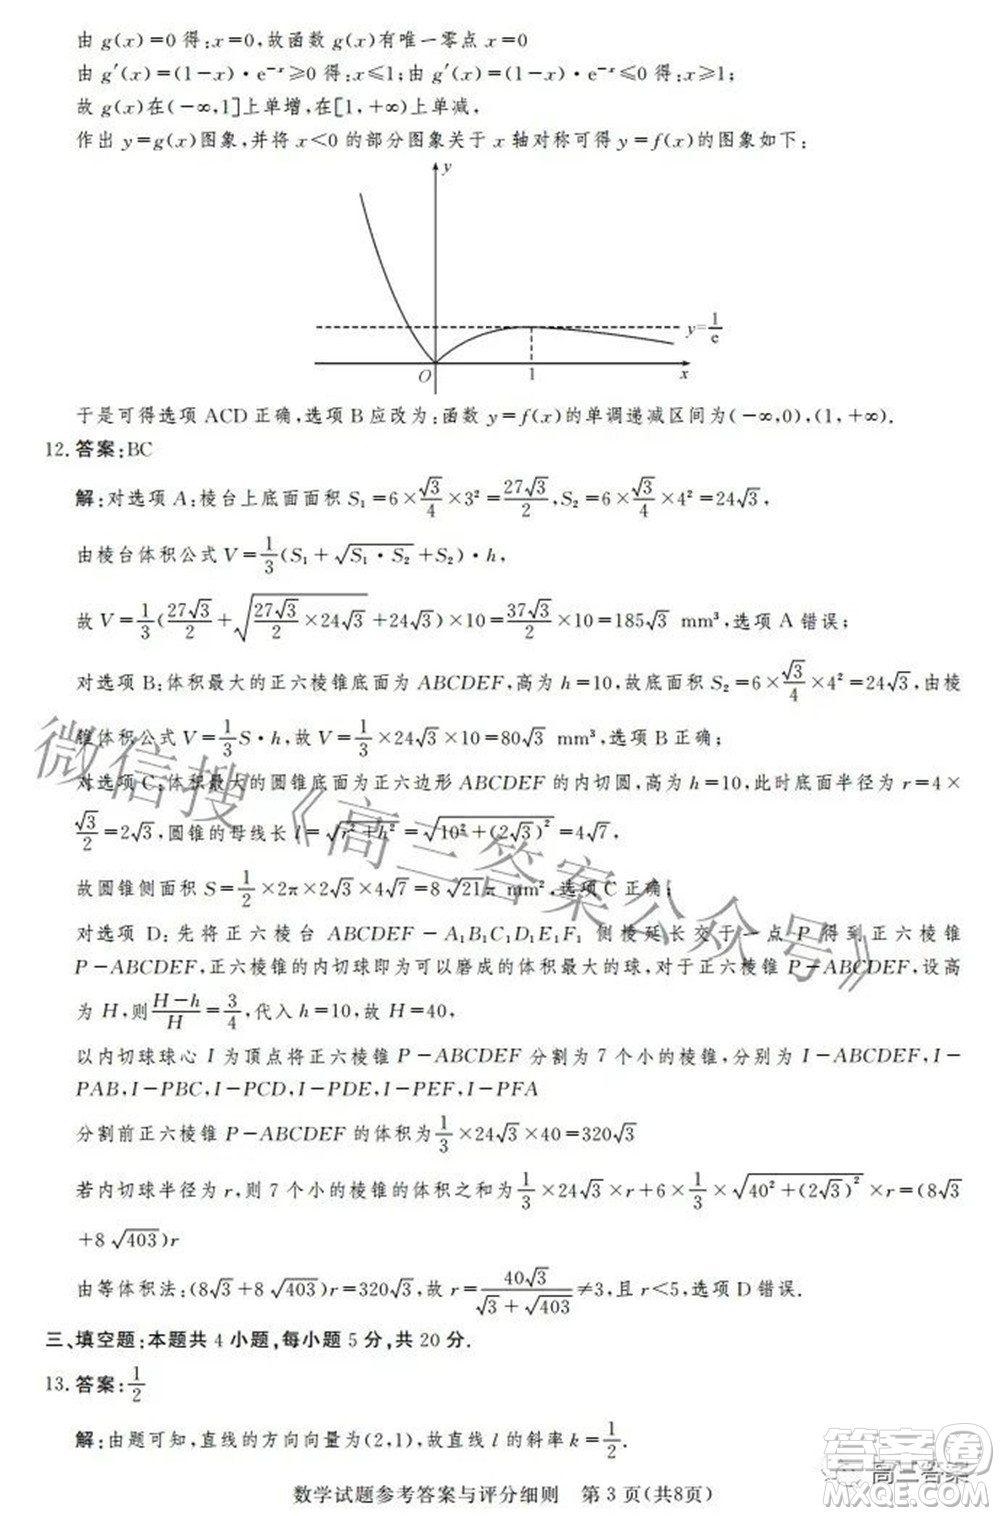 由 g(x)=0 得:x=0,故函数 g(x)有唯一零点 x=0
由 g′(x)=(1-x)·e⁻ˣ≥0 得:x≤1;由 g′(x)=(1-x)·e⁻ˣ≤0 得:x≥1;
故 g(x)在(-∞,1]上单增,在[1,+∞)上单减,
作出 y=g(x)图象,并将 x<0 的部分图象关于 x 轴对称可得 y=f(x)的图象如下:
y
y=1/e
O 1 x
于是可得选项 ACD 正确,选项 B 应改为:函数 y=f(x)的单调递减区间为(-∞,0),(1,+∞).
12.答案:BC
解:对选项 A:棱台上底面面积 S₁=6×√3/4×3²=27√3/2,S₂=6×√3/4×4²=24√3,
由棱台体积公式 V=1/3(S₁+√(S₁·S₂)+S₂)·h,
故 V=1/3(27√3/2+√(27√3/2×24√3)+24√3)×10=37√3/2×10=185√3 mm³,选项 A 错误;
对选项 B:体积最大的正六棱锥底面为 ABCDEF,高为 h=10,故底面积 S₂=6×√3/4×4²=24√3,由棱
锥体积公式 V=1/3S·h,故 V=1/3×24√3×10=80√3 mm³,选项 B 正确;
对选项 C:体积最大的圆锥底面为正六边形 ABCDEF 的内切圆,高为 h=10,此时底面半径为 r=4×
√3/2=2√3,圆锥的母线长 l=√(r²+h²)=√(10²+(2√3)²)=4√7,
故圆锥侧面积 S=1/2×2π×2√3×4√7=8√21π mm²,选项 C 正确;
对选项 D:先将正六棱台 ABCDEF-A₁B₁C₁D₁E₁F₁ 侧棱延长交于一点 P 得到正六棱锥
P-ABCDEF,正六棱锥的内切球即为可以磨成的体积最大的球,对于正六棱锥 P-ABCDEF,设高
为 H,则(H-h)/H=3/4,代入 h=10,故 H=40,
以内切球球心 I 为顶点将正六棱锥 P-ABCDEF 分割为 7 个小的棱锥,分别为 I-ABCDEF,I-
PAB,I-PBC,I-PCD,I-PDE,I-PEF,I-PFA
分割前正六棱锥 P-ABCDEF 的体积为1/3×24√3×40=320√3
若内切球半径为 r,则 7 个小的棱锥的体积之和为1/3×24√3×r+6×1/3×√(40²+(2√3)²)×r=(8√3
+8√403)r
由等体积法:(8√3+8√403)r=320√3,故 r=40√3/(√3+√403)≠3,且 r<5,选项 D 错误.
三、填空题:本题共 4 小题,每小题 5 分,共 20 分.
13.答案:1/2
解:由题可知,直线的方向向量为(2,1),故直线 l 的斜率 k=1/2.
数学试题参考答案与评分细则 第 3 页(共8页)
微信搜《高三答案公众号》
答案圈
高三答案
MXQE.COM